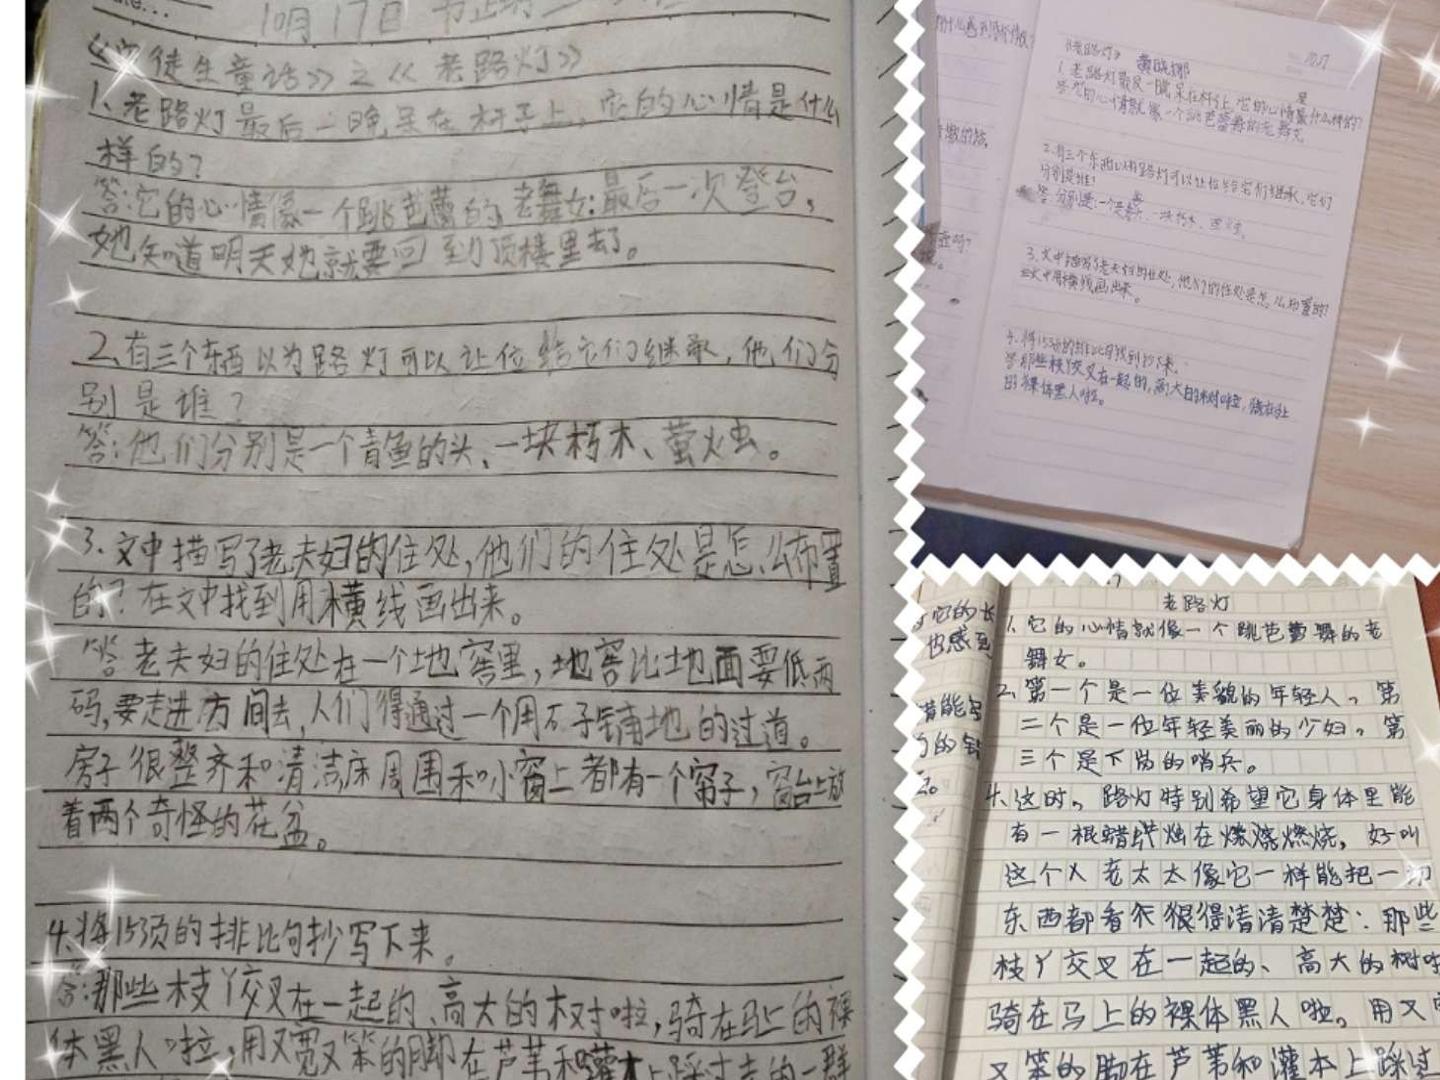 10月17日
《安徒生童话》之《老路灯》
1、老路灯最后一晚呆在杆子上，它的心情是什么
样的？
答：它的心情像一个跳芭蕾的老舞女：最后一次登台，
她知道明天她就要回到顶楼里去了。
2、有三个东西以为路灯可以让位给它们继承，他们分
别是谁？
答：他们分别是一个青鱼的头、一块朽木、萤火虫。
3、文中描写了老夫妇的住处，他们的住处是怎么布置
的？在文中找到用横线画出来。
答老夫妇的住处在一个地窖里，地窖比地面要低两
码，要走进方间去，人们得通过一个用石子铺地的过道。
房子很整齐和清洁床周围和小窗上都有一个帘子，窗台上放
着两个奇怪的花盆。
4、将15页的排比句抄写下来。
答：那些枝丫交叉在一起的、高大的树啦，骑在马上的裸
体黑人啦，用又宽又笨的脚在芦苇和灌木上踩过去的一群
《老路灯》
10.17
1、老路灯最后一晚呆在杆子上，它的心情是什么样的？
答：它的心情就像一个跳芭蕾舞的老舞女
2、有三个东西以为路灯可以让位给它们继承，它们
分别是谁？
3、文中描写了老夫妇的住处，他们的住处是怎么布置的？
在文中用横线画出来。
4、将15页的排比句找到抄下来。
答那些枝丫交叉在一起的，高大的树啦，骑在马上
的裸体黑人啦。
老路灯
1、它的心情就像一个跳芭蕾舞的老
舞女。
2、第一个是一位美貌的年轻人。第
二个是一位年轻美丽的少妇。第
三个是下岗的哨兵。
4、这时，路灯特别希望它身体里能
有一根蜡烛在燃烧，好叫
这个老太太像它一样能把一切
东西都看得清清楚楚：那些
枝丫交叉在一起的、高大的树啦
骑在马上的裸体黑人啦。用又宽
又笨的脚在芦苇和灌木上踩过